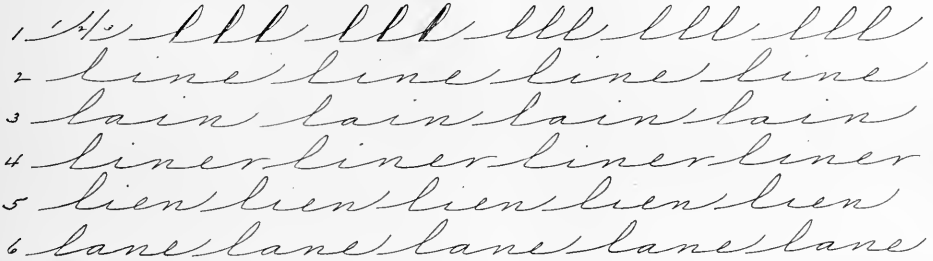 1 1 2 3 lll lll lll lll lll
2 line line line line
3 lain lain lain lain
4 liner liner liner liner
5 lien lien lien lien lien
6 lane lane lane lane lane